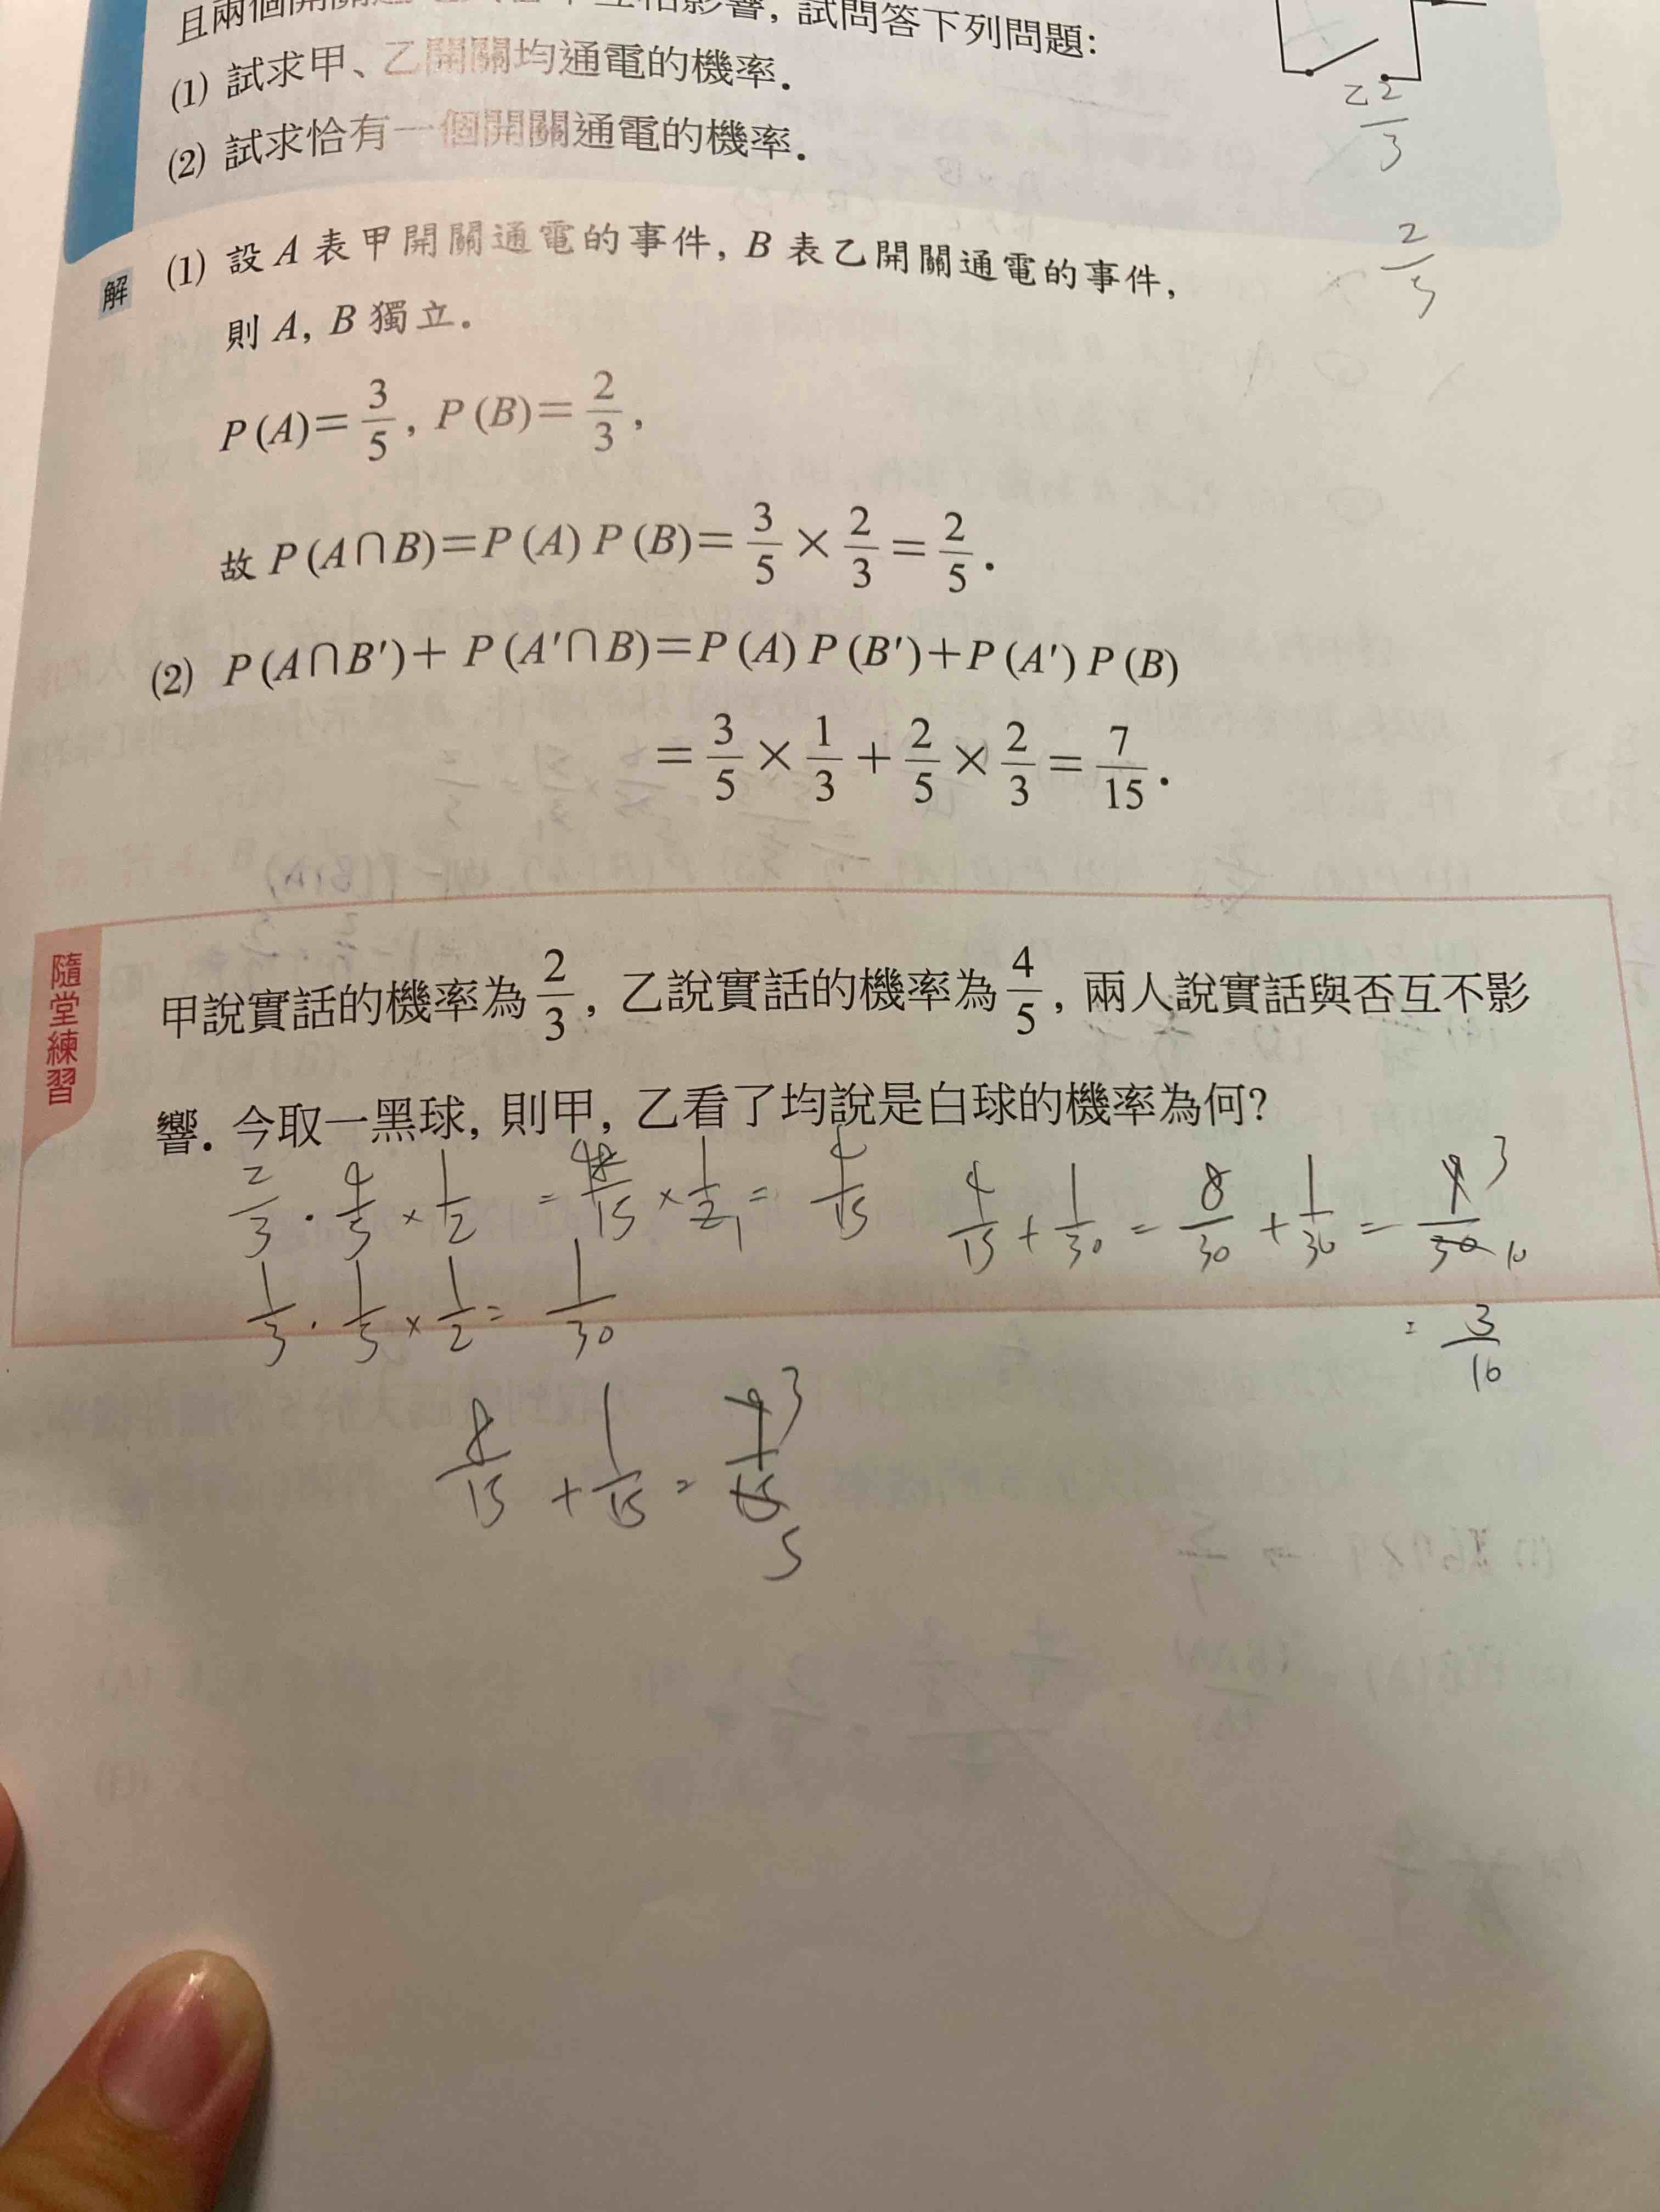 影響, 試問答下列問題:
(1) 試求甲、乙開關均通電的機率.
(2) 試求恰有一個開關通電的機率.
乙 2/3
2/5
解 (1) 設 A 表甲開關通電的事件, B 表乙開關通電的事件,
則 A, B 獨立.
P(A)=3/5, P(B)=2/3,
故 P(A∩B)=P(A) P(B)=3/5×2/3=2/5.
(2) P(A∩B′)+P(A′∩B)=P(A) P(B′)+P(A′) P(B)
=3/5×1/3+2/5×2/3=7/15.
隨堂練習
甲說實話的機率為2/3, 乙說實話的機率為4/5, 兩人說實話與否互不影
響. 今取一黑球, 則甲, 乙看了均說是白球的機率為何?
2/3·4/5×1/2=8/15×1/2=4/15
4/15+1/30=8/30+1/30=9/30
1/3·1/5×1/2=1/30
=3/10
8/15+1/15=9/15